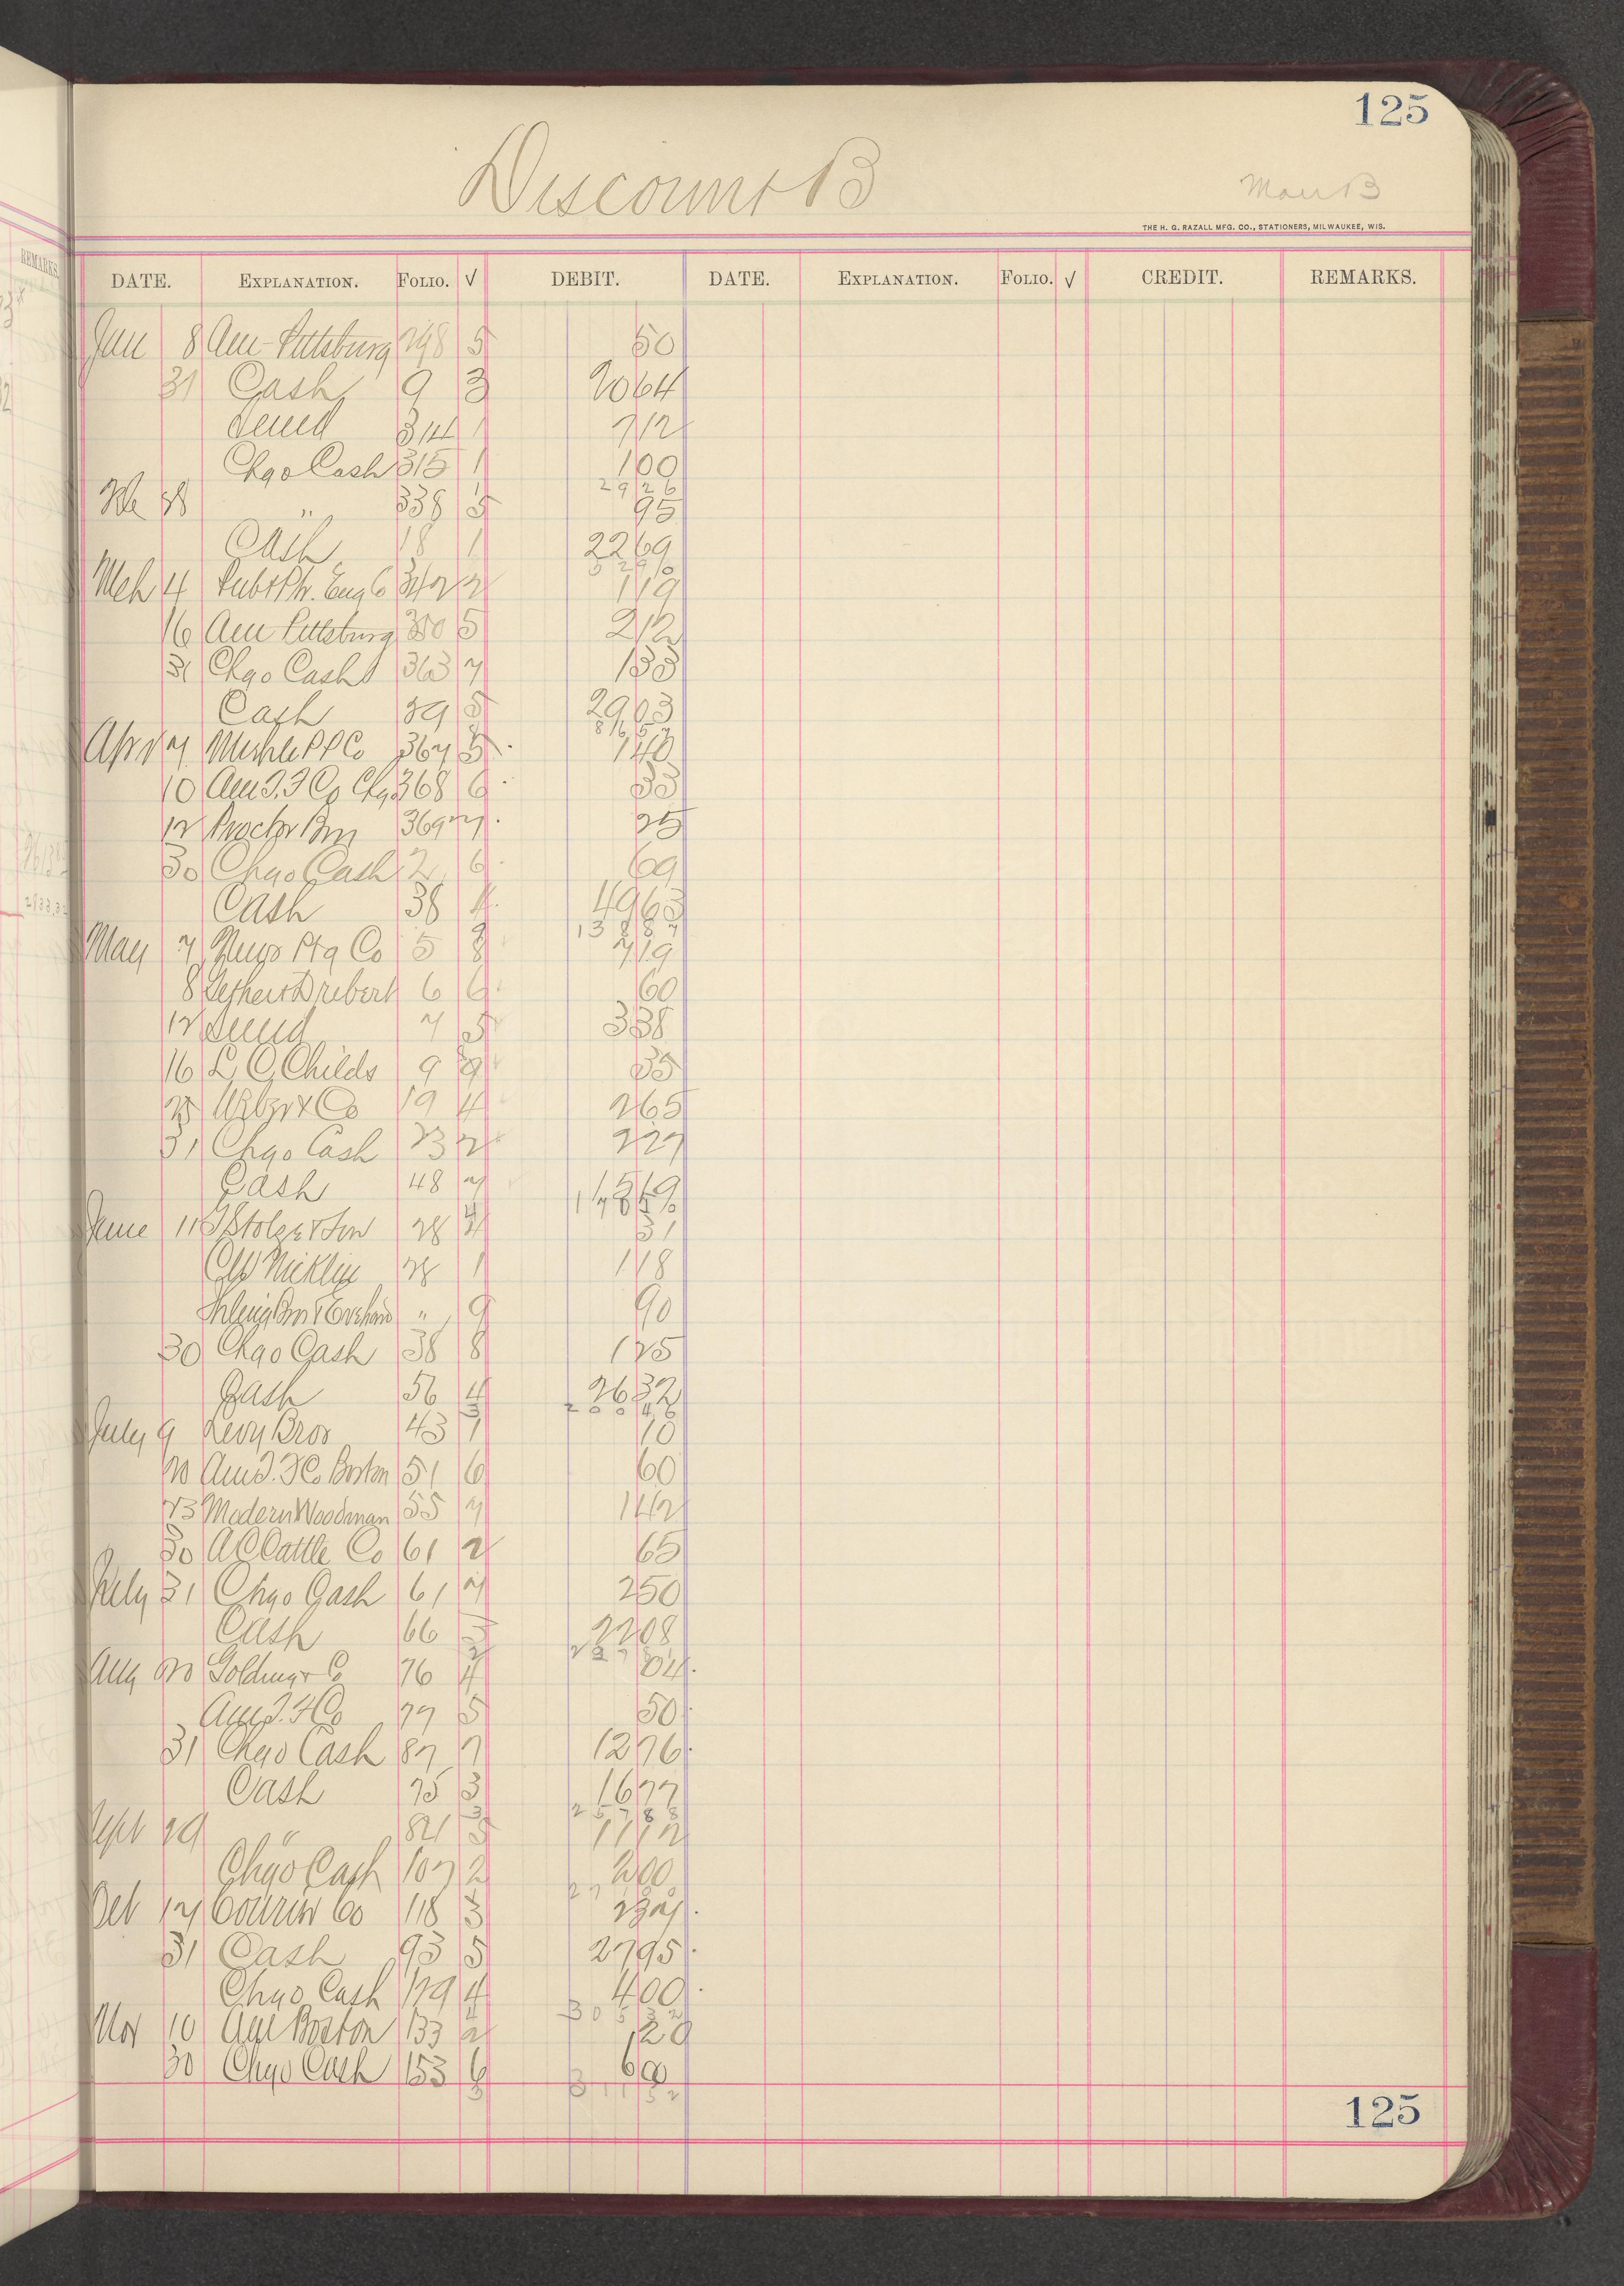 125
Discount B
Mar B
THE H. G. RAZALL MFG. CO., STATIONERS, MILWAUKEE, WIS.
DATE. EXPLANATION. FOLIO. √ DEBIT. DATE. EXPLANATION. FOLIO. √ CREDIT. REMARKS.
Jan 8 Am Pittsburg 298 5 50
31 Cash 9 3 2064
314 1 712
Chgo Cash 315 1 100
2926
28 " 338 5 95
Cash 18 1 2269
5290
Mch 4 342 2 119
16 Am Pittsburg 350 5 212
31 Chgo Cash 363 7 133
Cash 29 5 2903
8657
Apr 7 Co 367 5 140
10 Am T. F Co Chgo 368 6 33
12 Proctor Bros 369 7 25
30 Chgo Cash 2 6 69
Cash 38 4 4963
13887
May 7 Ptg Co 5 8 719
8 6 6 60
12 7 5 338
16 L. C. Childs 9 9 35
25 & Co 19 4 265
31 Chgo Cash 23 2 227
Cash 48 7 1519
17050
June 11 Stolze & Son 28 4 31
Nicklin 28 1 118
" 9 90
30 Chgo Cash 38 8 125
Cash 56 4 2632
20046
July 9 Levy Bros 43 1 10
20 Am T. F Co Boston 51 6 60
23 Modern Woodman 55 7 142
30 A C Cattle Co 61 2 65
July 31 Chgo Cash 61 7 250
Cash 66 5 2208
Aug 20 Co 76 4 04
Am T. F Co 77 5 50
31 Chgo Cash 87 7 1276
Cash 75 3 1677
25788
Sept 29 " 84 5 1112
Chgo Cash 107 2 200
Oct 17 Courier Co 118 3 237
31 Cash 93 5 2795
Chgo Cash 129 4 400
30532
Nov 10 Am Boston 133 2 120
30 Chgo Cash 153 6 60
31152
125